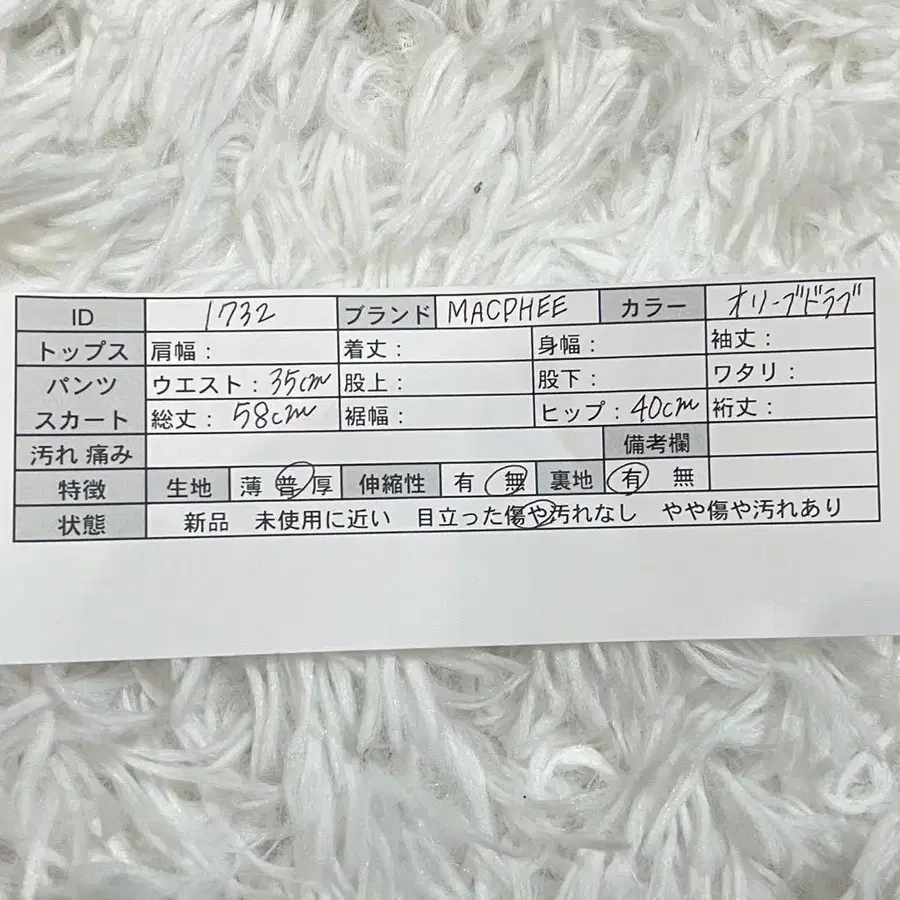 ID 1732 ブランド MACPHEE カラー オリーブドラブ
トップス 肩幅： 着丈： 身幅： 袖丈：
パンツ ウエスト：35cm 股上： 股下： ワタリ：
スカート 総丈：58cm 裾幅： ヒップ：40cm 裄丈：
汚れ 痛み 備考欄
特徴 生地 薄 普 厚 伸縮性 有 無 裏地 有 無
状態 新品 未使用に近い 目立った傷や汚れなし やや傷や汚れあり